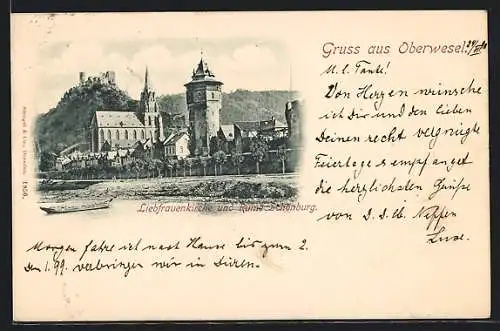 Gruss aus Oberwesel.
M. l. Tante!
Von Herzen wünsche
ich Dir und den lieben
Deinen recht vergnügte
Feiertage & empfanget
die herzlichsten Grüße
von D. D. lb. Neffen
Liebfrauenkirche und Ruine Schönburg.
Morgen fahre ich nach Hause bis zum 2.
den 1. 99. verbringen wir in Düren.
Stengel & Co., Dresden. 1856.